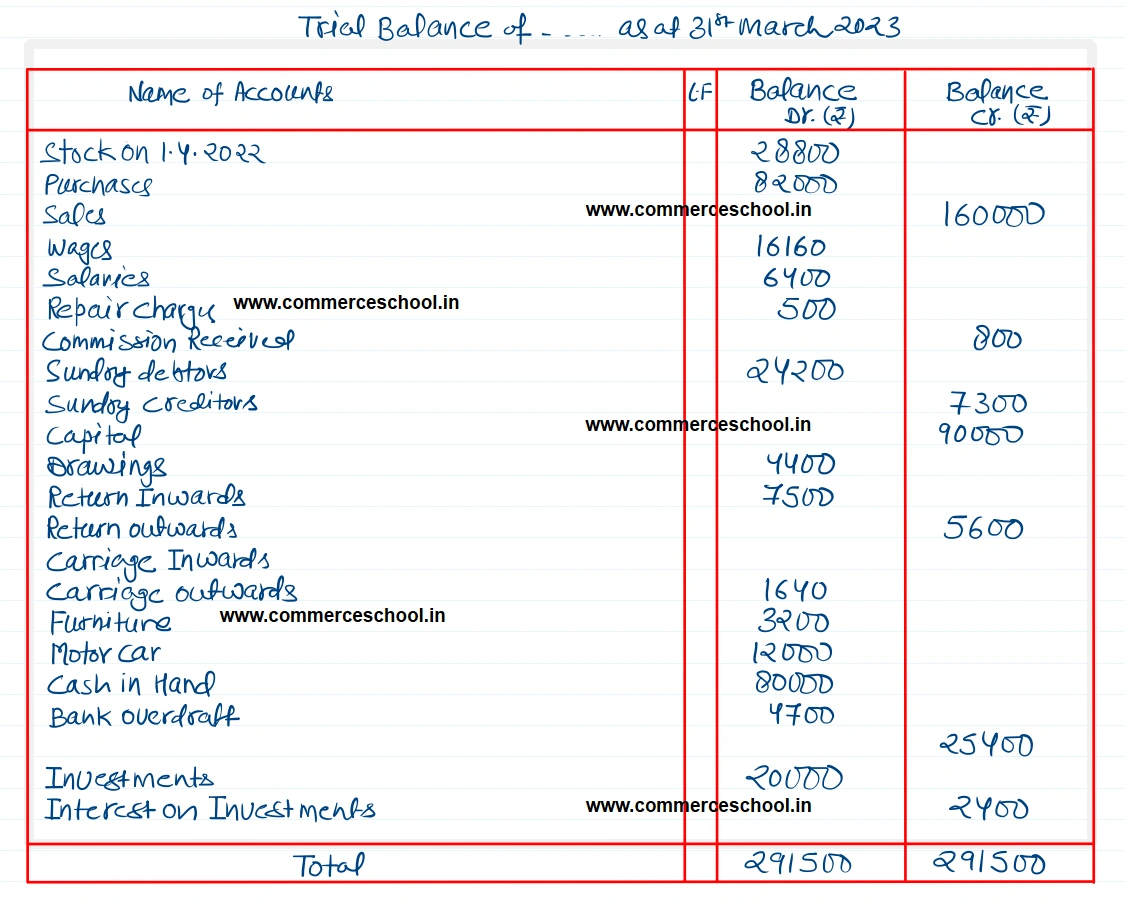 Trial Balance of - ..... as at 31st March 2023
Name of Accounts L.F Balance Dr. (₹) Balance Cr. (₹)
Stock on 1.4.2022 28800
Purchases 82000
Sales www.commerceschool.in 160000
Wages 16160
Salaries 6400
Repair charges www.commerceschool.in 500
Commission Received 800
Sundry debtors 24200
Sundry creditors 7300
Capital www.commerceschool.in 90000
Drawings 4400
Return Inwards 7500
Return outwards 5600
Carriage Inwards
Carriage outwards 1640
Furniture www.commerceschool.in 3200
Motor car 12000
Cash in Hand 80000
Bank overdraft 4700
25400
Investments 20000
Interest on Investments www.commerceschool.in 2400
Total 291500 291500